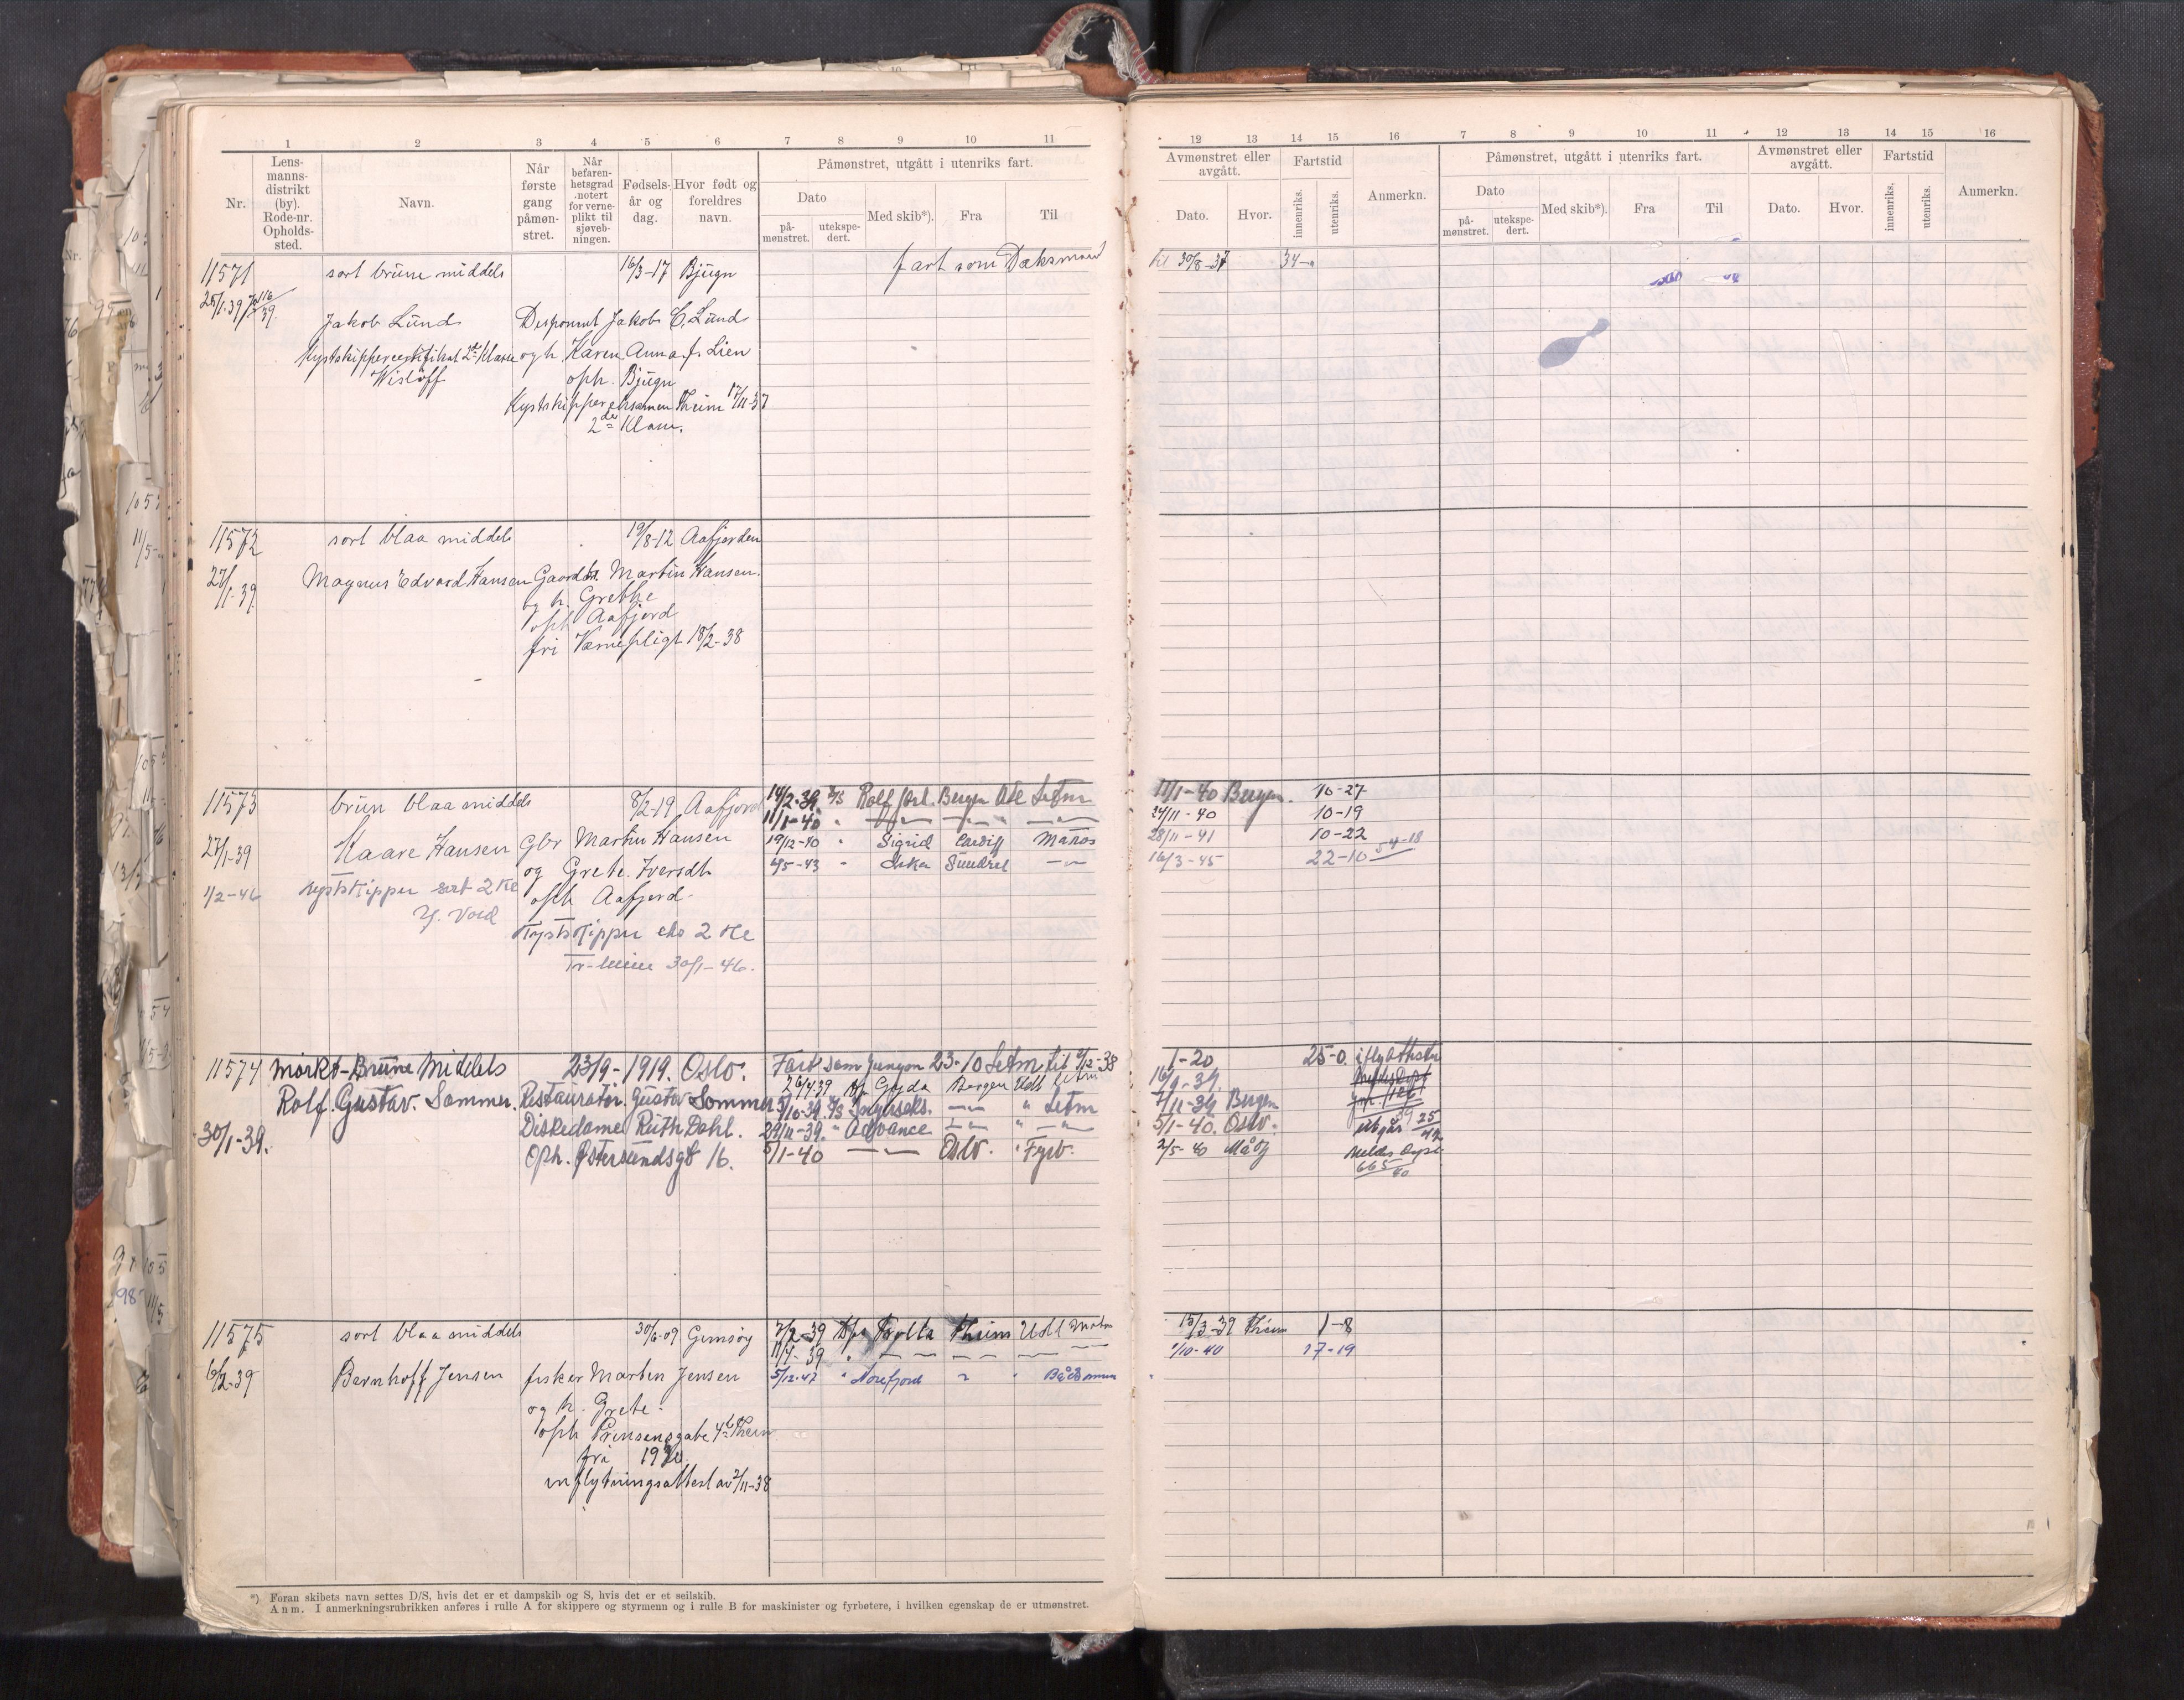 1 2 3 4 5 6 7 8 9 10 11
Nr.
Lens-
manns-
distrikt
(by).
Rode-nr.
Opholds-
sted.
Navn.
Når
første
gang
påmøn-
stret.
Når
befaren-
hetsgrad
notert
for verne-
plikt til
sjøveb-
ningen.
Fødsels-
år og
dag.
Hvor født og
foreldres
navn.
Påmønstret, utgått i utenriks fart.
Dato
på-
mønstret.
utekspe-
dert.
Med skib*).
Fra
Til
11571 sort brune middels 16/3-17 Bjugn fart som Dæksmand
25/1.39
Jakob Lund Disponent Jakob C. Lund
Kystskippercertifikat 2den Klasse og h. Karen Anna f. Lien
Wisløff oph. Bjugn
Kystskippereksamen Theim 17/11-37
2den Klasse.
11572 sort blaa middels 19/8-12 Aafjorden
27/1.39 Magnus Edvard Hansen Gaardbr. Martin Hansen.
og h. Grethe
oph Aafjord
fri Værnepligt 18/2-38
11573 brun blaa middels 8/2-19 Aafjord 14/2-39 Rolf Jarl. Bergen Letm
11/1-40
27/1-39 Kaare Hansen Gbr Martin Hansen 19/12-40 Sigrid Cardiff Matros
og Grete Iversdt. 4/5-43 Sundsvl
1/2-46 Kystskipper sert 2 Kl oph Aafjord.
Kystskipper eks 2 Kl
30/1-46.
11574 Mørkt-Brune Middels 23/9-1919. Oslo. Fart som Jungm 23-10 Letm til 2/12-38
Rolf. Gustav. Sommer. Restauratør. Gustav Sommer 26/4.39 Gyda Bergen Udl Letm
5/10-39 Letm
30/1-39. Diskedame Ruth Dahl. 29/11-39. Advance
Oph. Østersundsgt 16. 5/1-40 Oslo. Fyrb.
11575 sort blaa middels 30/6-09 Gimsøy 7/2-39 D/s Trolla Theim Udl Matros
11/4-39
6/2-39 Bernhoff Jensen fisker Martin Jensen 5/12-47 Norefjord Båtsmann
og h. Grete.
oph Prinsensgate 4b Theim
fra
innflytningsattest av 2/11-38
*) Foran skibets navn settes D/S, hvis det er et dampskib og S, hvis det er et seilskib.
Anm. I anmerkningsrubrikken anføres i rulle A for skippere og styrmenn og i rulle B for maskinister og fyrbøtere, i hvilken egenskap de er utmønstret.
12 13 14 15 16 7 8 9 10 11 12 13 14 15 16
Avmønstret eller
avgått.
Dato.
Hvor.
Fartstid
innenriks.
utenriks.
Anmerkn.
Påmønstret, utgått i utenriks fart.
Dato
på-
mønstret.
utekspe-
dert.
Med skib*).
Fra
Til
Avmønstret eller
avgått.
Dato.
Hvor.
Fartstid
innenriks.
utenriks.
Anmerkn.
til 30/8-37 34-
11/1-40 Bergen. 10-27
24/11-40 10-19
28/11-41 10-22
16/3-45 22-10 54-18
1-20 25-0.
16/9-39.
7/11-39 Bergen
5/1-40. Oslo.
2/5-40
15/3-39 Theim 1-8
1/10-40 17-19